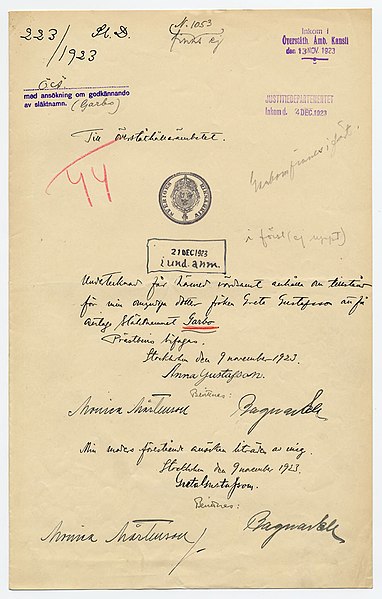 223/1923
St. D.
N. 1053
Inkom i
Överståth.Ämb. Kansli
den 13 NOV. 1923
ÖÄ
med ansökan om godkännande
av släktnamn. (Garbo)
JUSTITIEDEPARTEMENTET
Inkom d. 4 DEC. 1923
Till Överståthållareämbetet.
44
SVERIGES RIKSARKIV
i först (ej nyupt)
21 DEC 1923
i und. anm.
Undertecknad får härmed vördsamt anhålla om tillstånd
för min omyndiga dotter fröken Greta Gustafsson att få
antaga släktnamnet Garbo
Prästbevis bifogas.
Stockholm den 9 november 1923.
Anna Gustafsson.
Bevittnas:
Monica Mårtenson
Min moders förestående ansökan biträdes av mig.
Stockholm den 9 november 1923.
Greta Gustafsson.
Bevittnas:
Monica Mårtenson